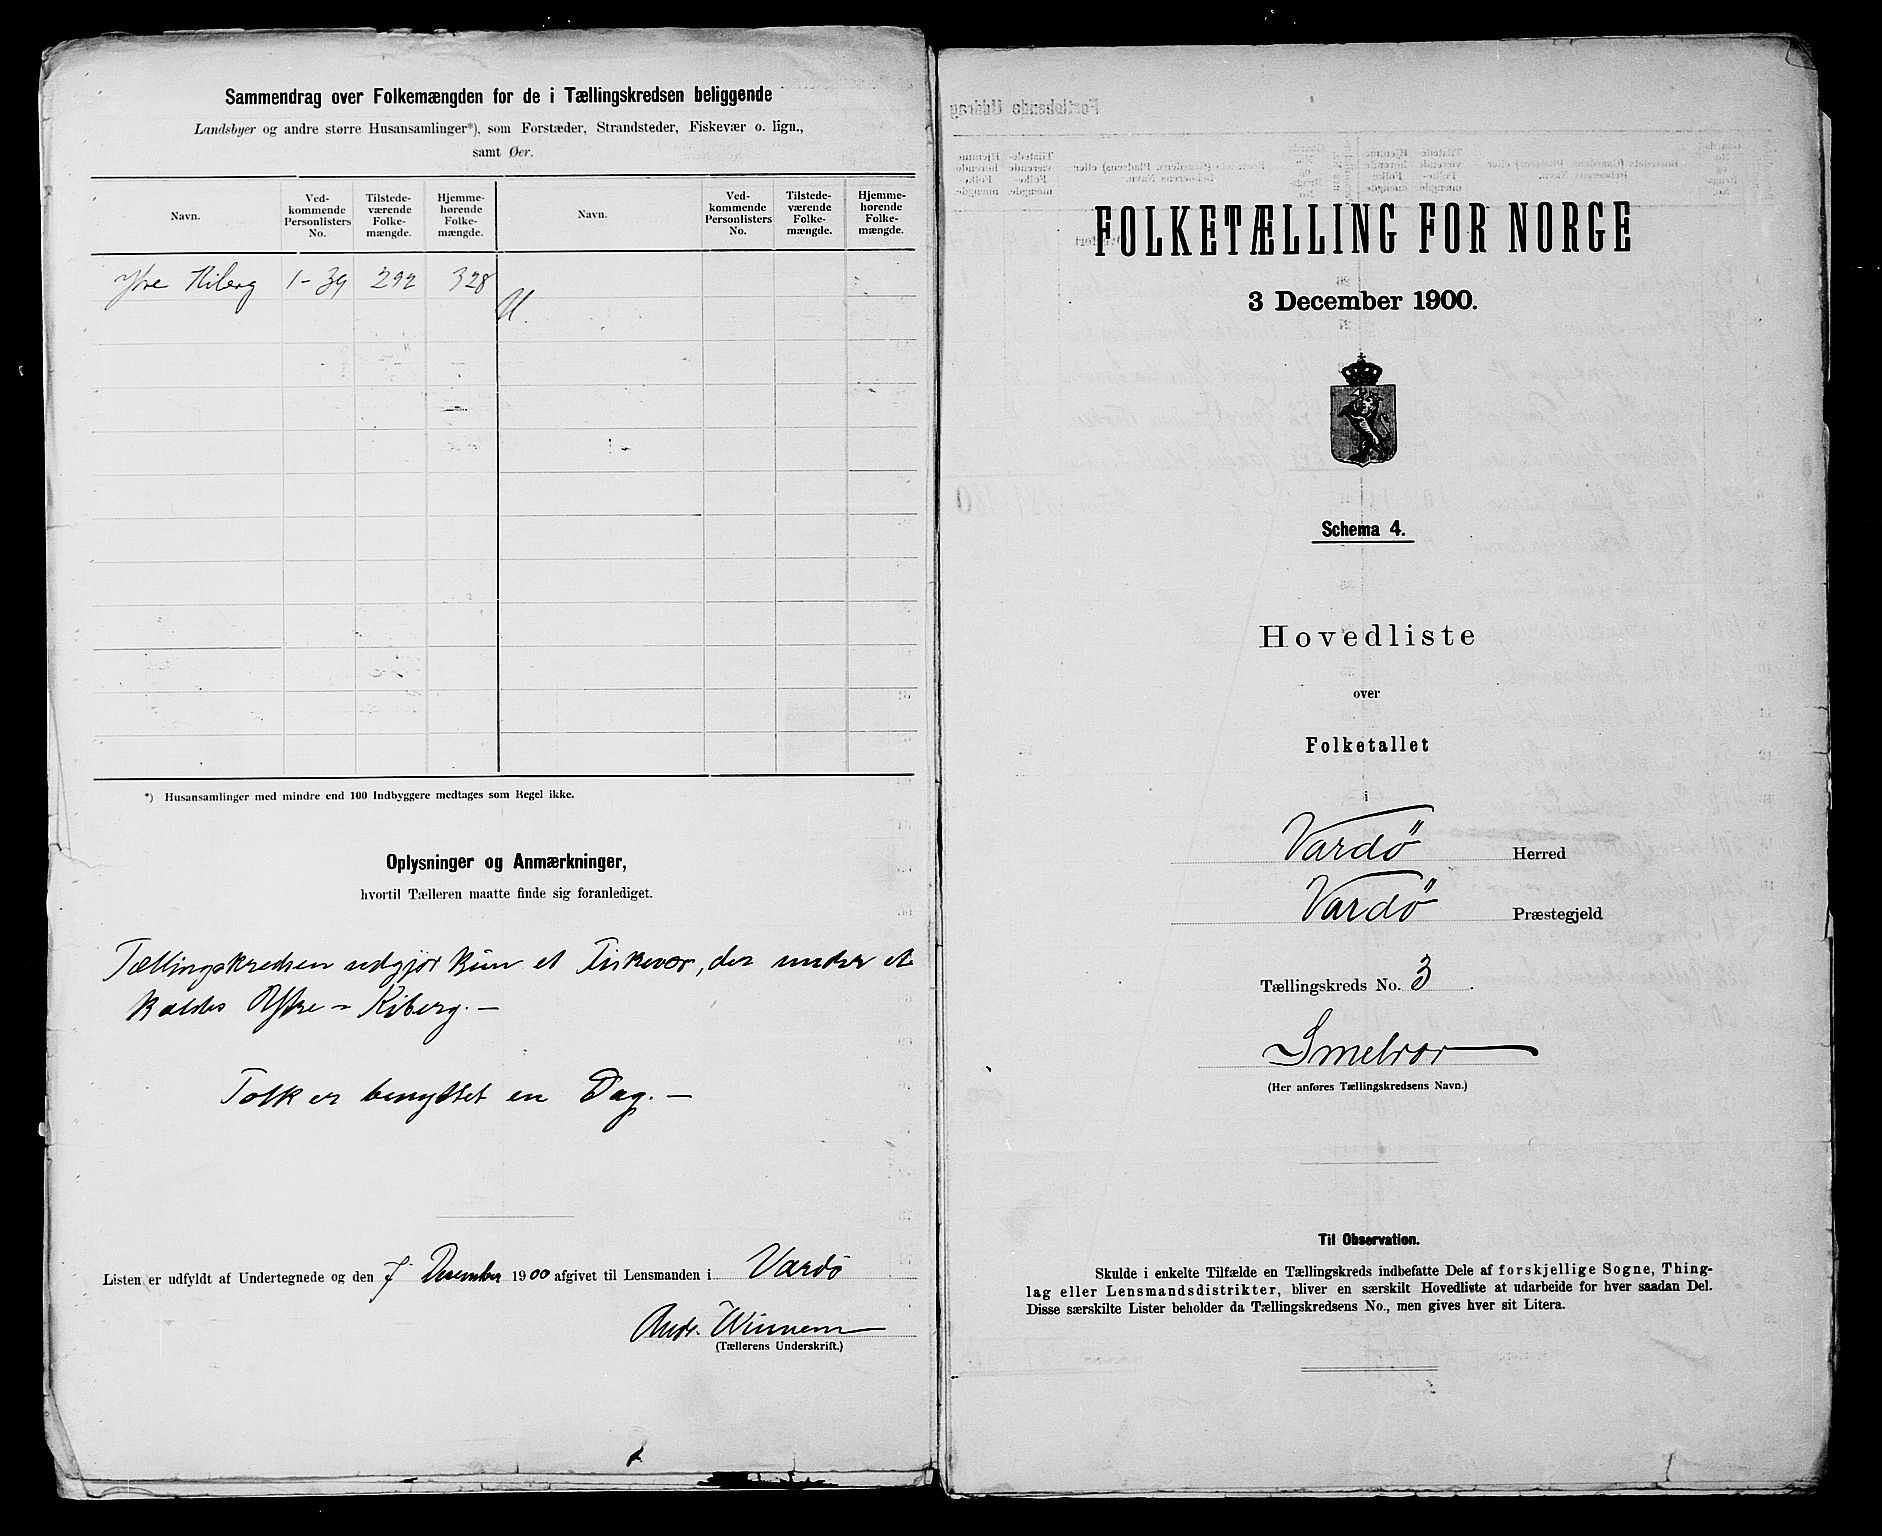 Sammendrag over Folkemængden for de i Tællingskredsen beliggende
Landsbyer og andre større Husansamlinger*), som Forstæder, Strandsteder, Fiskevær o. lign.,
samt Øer.
Navn. Ved-kommende Personlisters No. Tilstede-værende Folke-mængde. Hjemme-hørende Folke-mængde. Navn. Ved-kommende Personlisters No. Tilstede-værende Folke-mængde. Hjemme-hørende Folke-mængde.
Ytre Kiberg 1-39 292 328
*) Husansamlinger med mindre end 100 Indbyggere medtages som Regel ikke.
Oplysninger og Anmærkninger,
hvortil Tælleren maatte finde sig foranlediget.
Tællingskredsen udgjør kun et Fiskevær, der under et
kaldes Ytre-Kiberg. —
Tolk er benyttet en Dag. —
Listen er udfyldt af Undertegnede og den 7 December 1900 afgivet til Lensmanden i Vardö
Andr. Winnem
(Tællerens Underskrift.)
FOLKETÆLLING FOR NORGE
3 December 1900.
Schema 4.
Hovedliste
over
Folketallet
i
Vardö Herred
Vardö Præstegjeld
Tællingskreds No. 3.
Smelror
(Her anføres Tællingskredsens Navn.)
Til Observation.
Skulde i enkelte Tilfælde en Tællingskreds indbefatte Dele af forskjellige Sogne, Thing-
lag eller Lensmandsdistrikter, bliver en særskilt Hovedliste at udarbeide for hver saadan Del.
Disse særskilte Lister beholder da Tællingskredsens No., men gives hver sit Litera.